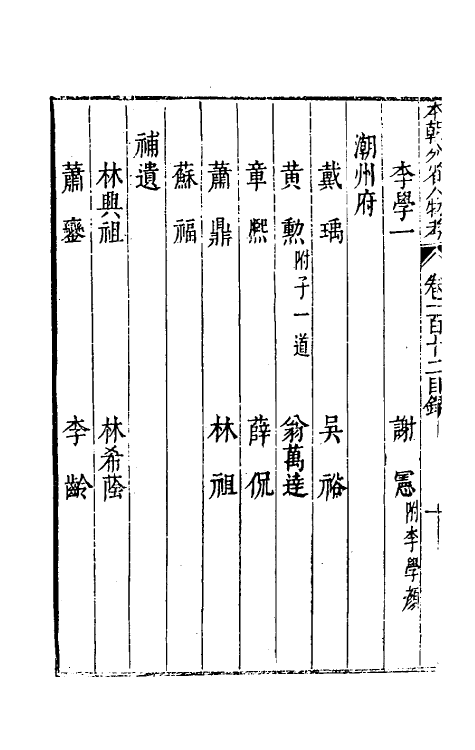 本朝分省人物考 卷一百十二目錄 十
李學一 謝憲 附李學顏
潮州府
戴瑀 吳裕
黃勳 附子一道 翁萬達
章熙 薛侃
蕭鼎 林祖
蘇福
補遺
林興祖 林希蔭
蕭鑾 李齡